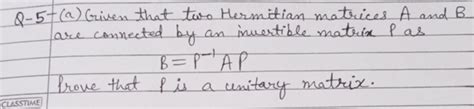 Q-5-(a) Given that two Hermitian matrices A and B
are connected by an invertible matrix P as
B = P⁻¹ A P
Prove that P is a unitary matrix.
CLASSTIME